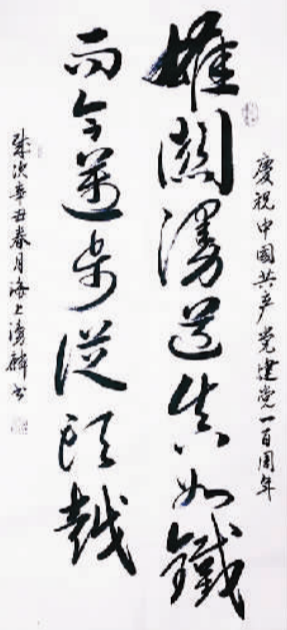 慶祝中國共产党建党一百周年
雄關漫道真如鐵
而今邁步從頭越
歲次辛丑春月海上 麟书